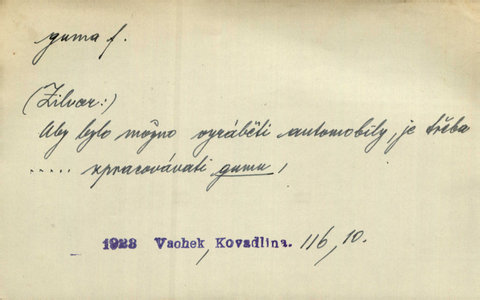 guma f.
(Zilvar:)
Aby bylo možno vyráběti automobily, je třeba
..... zpracovávati gumu,
1923 Vachek, Kovadlina. 116, 10.